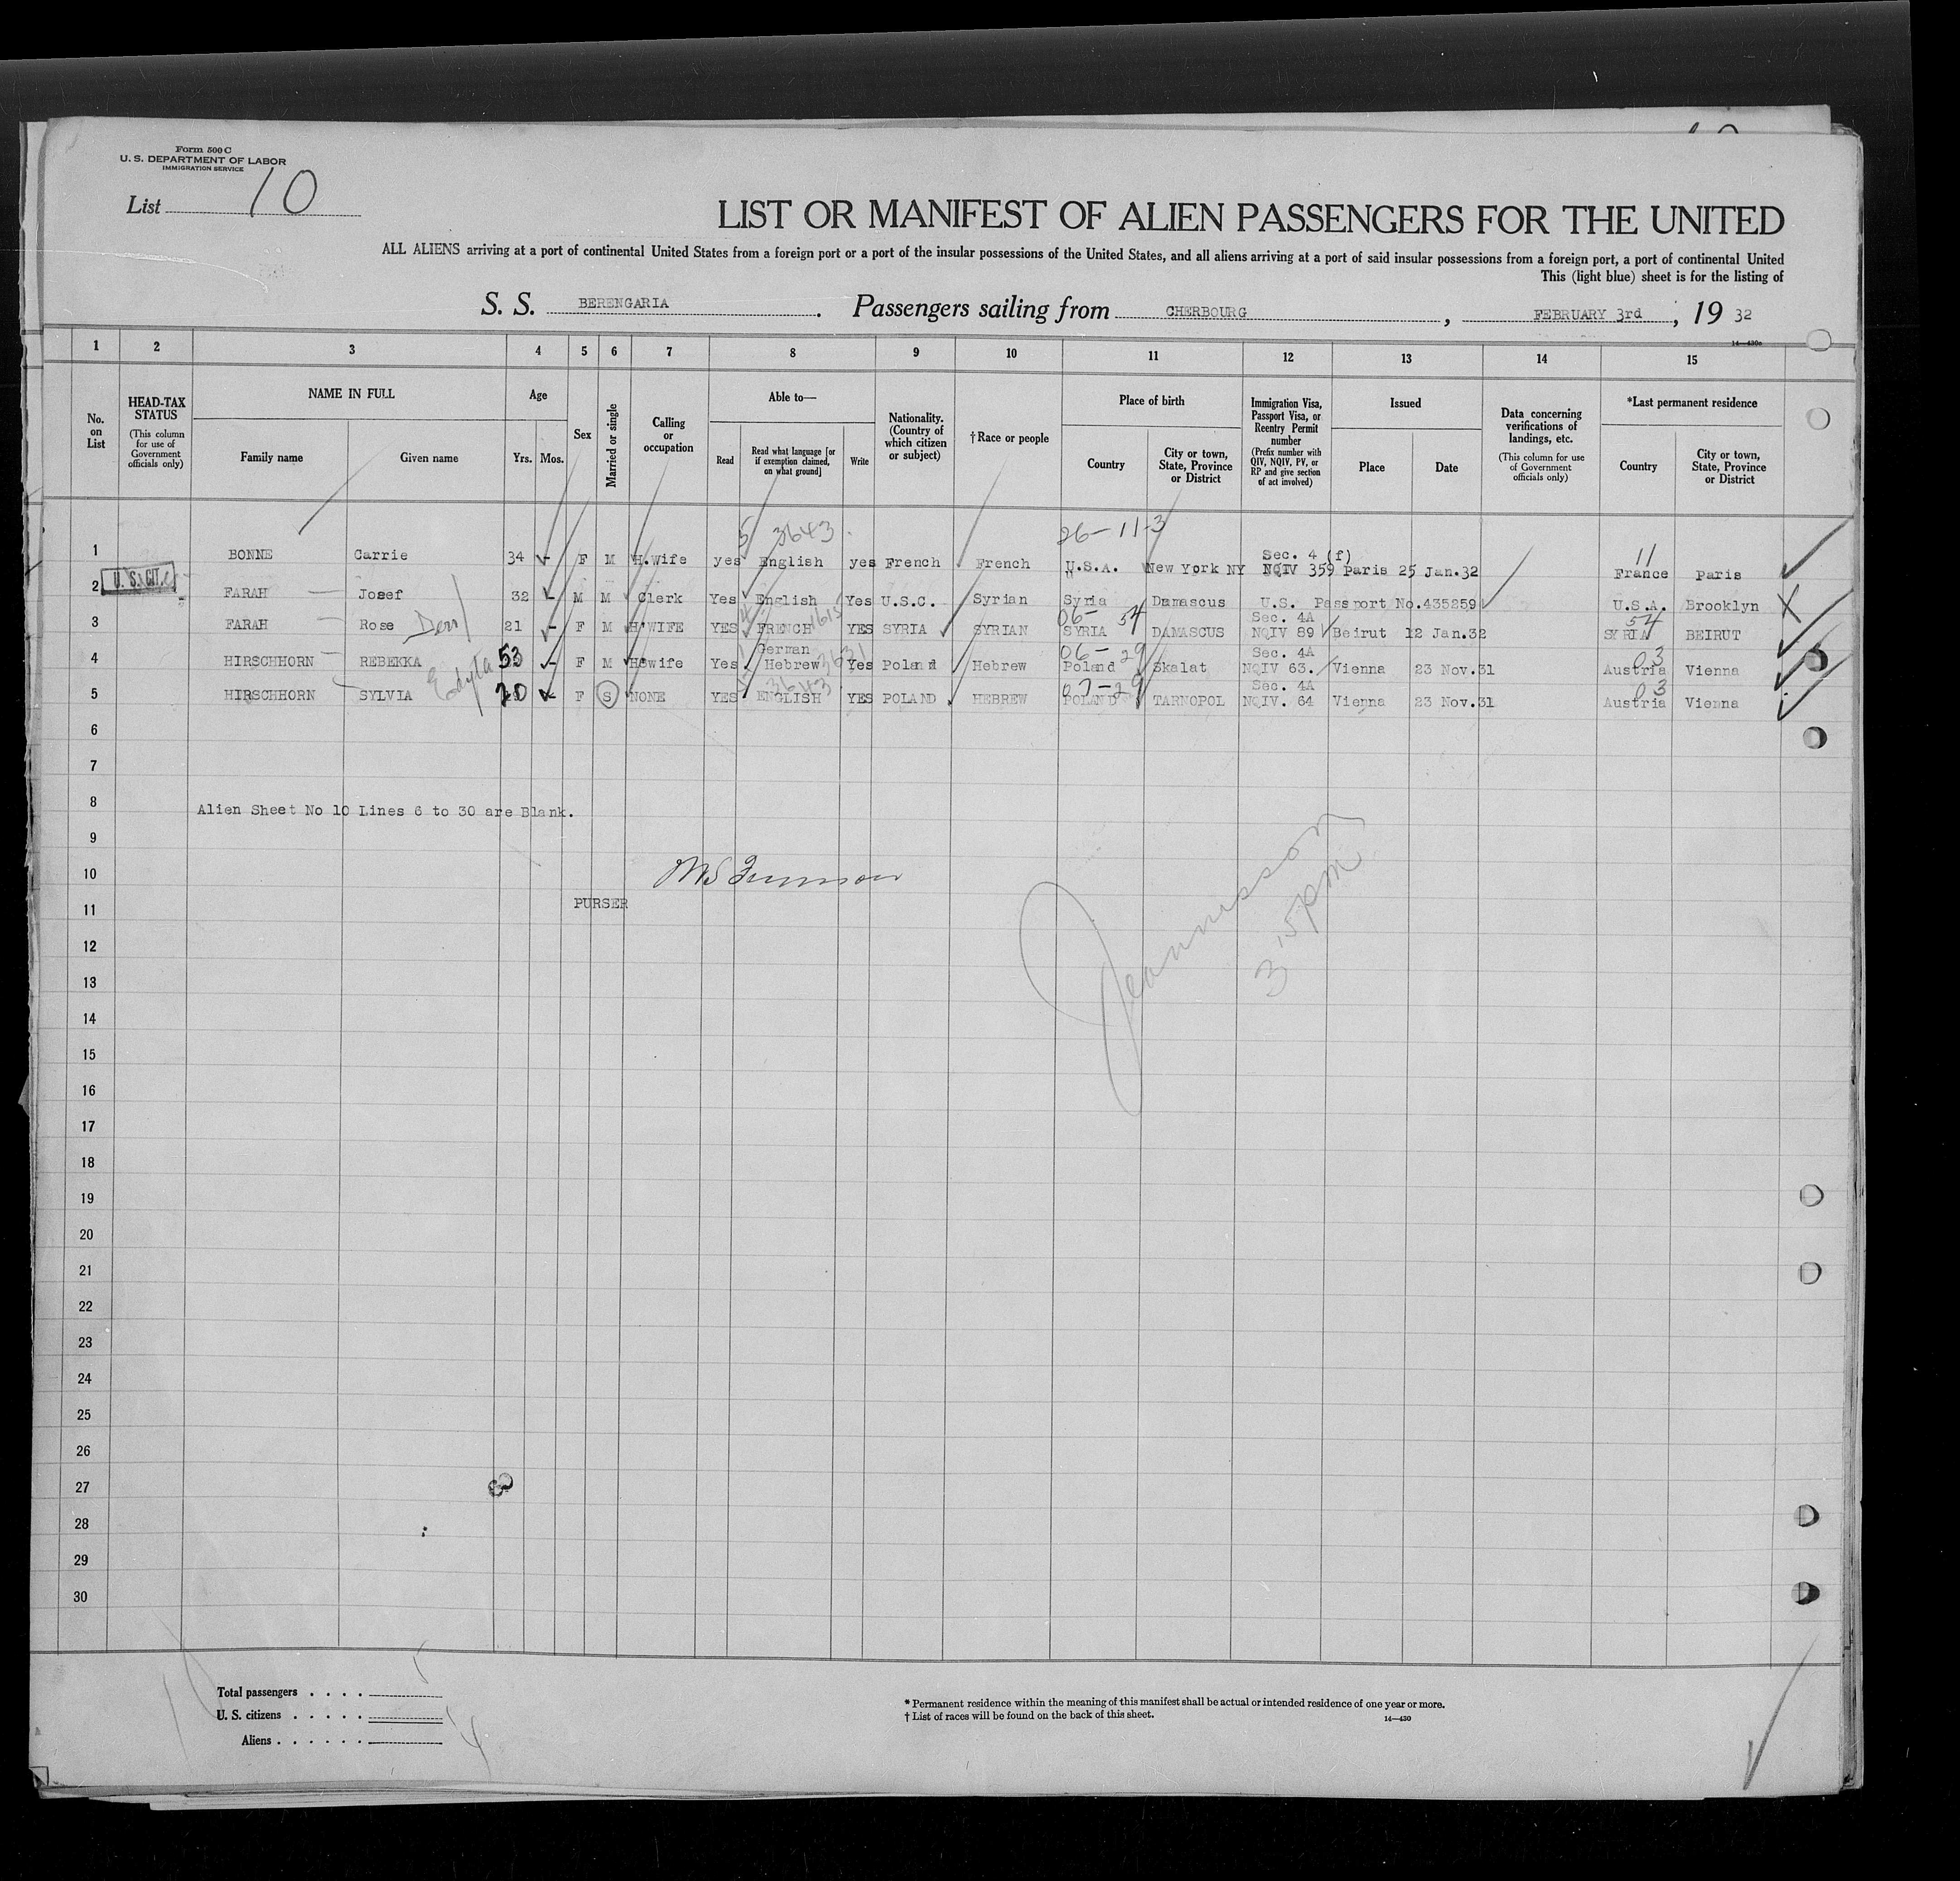 Form 500 C
U. S. DEPARTMENT OF LABOR
IMMIGRATION SERVICE
List 10
LIST OR MANIFEST OF ALIEN PASSENGERS FOR THE UNITED
ALL ALIENS arriving at a port of continental United States from a foreign port or a port of the insular possessions of the United States, and all aliens arriving at a port of said insular possessions from a foreign port, a port of continental United
This (light blue) sheet is for the listing of
S. S. BERENGARIA. Passengers sailing from CHERBOURG, FEBRUARY 3rd, 19 32
14—430c
1 2 3 4 5 6 7 8 9 10 11 12 13 14 15
No. on List
HEAD-TAX STATUS (This column for use of Government officials only)
NAME IN FULL
Family name Given name
Age
Yrs. Mos.
Sex
Married or single
Calling or occupation
Able to—
Read
Read what language [or if exemption claimed, on what ground]
Write
Nationality. (Country of which citizen or subject)
† Race or people
Place of birth
Country
City or town, State, Province or District
Immigration Visa, Passport Visa, or Reentry Permit number (Prefix number with QIV, NQIV, PV, or RP and give section of act involved)
Issued
Place Date
Data concerning verifications of landings, etc. (This column for use of Government officials only)
*Last permanent residence
Country
City or town, State, Province or District
5 3643 26-11-3
Sec. 4 (f) 11
1 BONNE Carrie 34 F M H.Wife yes English yes French French U.S.A. New York NY NQIV 359 Paris 25 Jan.32 France Paris
U. S. CIT.
2 FARAH Josef 32 M M Clerk Yes English Yes U.S.C. Syrian Syria Damascus U.S. Passport No.435259 U.S.A. Brooklyn
1615 06- 54 Sec. 4A 54
3 FARAH Rose 21 F M H.WIFE YES FRENCH YES SYRIA SYRIAN SYRIA DAMASCUS NQIV 89 Beirut 12 Jan.32 SYRIA BEIRUT
German 3631 06- 29 Sec. 4A 03
4 HIRSCHHORN REBEKKA 53 F M Hswife Yes Hebrew Yes Poland Hebrew Poland Skalat NQIV 63. Vienna 23 Nov.31 Austria Vienna
3643 07-29 Sec. 4A 03
5 HIRSCHHORN SYLVIA 20 F S NONE YES ENGLISH YES POLAND HEBREW POLAND TARNOPOL NQIV. 64 Vienna 23 Nov.31 Austria Vienna
6
7
8 Alien Sheet No 10 Lines 6 to 30 are Blank.
9
10
11 PURSER
12
13
14
15
16
17
18
19
20
21
22
23
24
25
26
27
28
29
30
Total passengers . . . .
U. S. citizens . . . . .
Aliens . . . . . .
4
* Permanent residence within the meaning of this manifest shall be actual or intended residence of one year or more.
† List of races will be found on the back of this sheet.
14—430